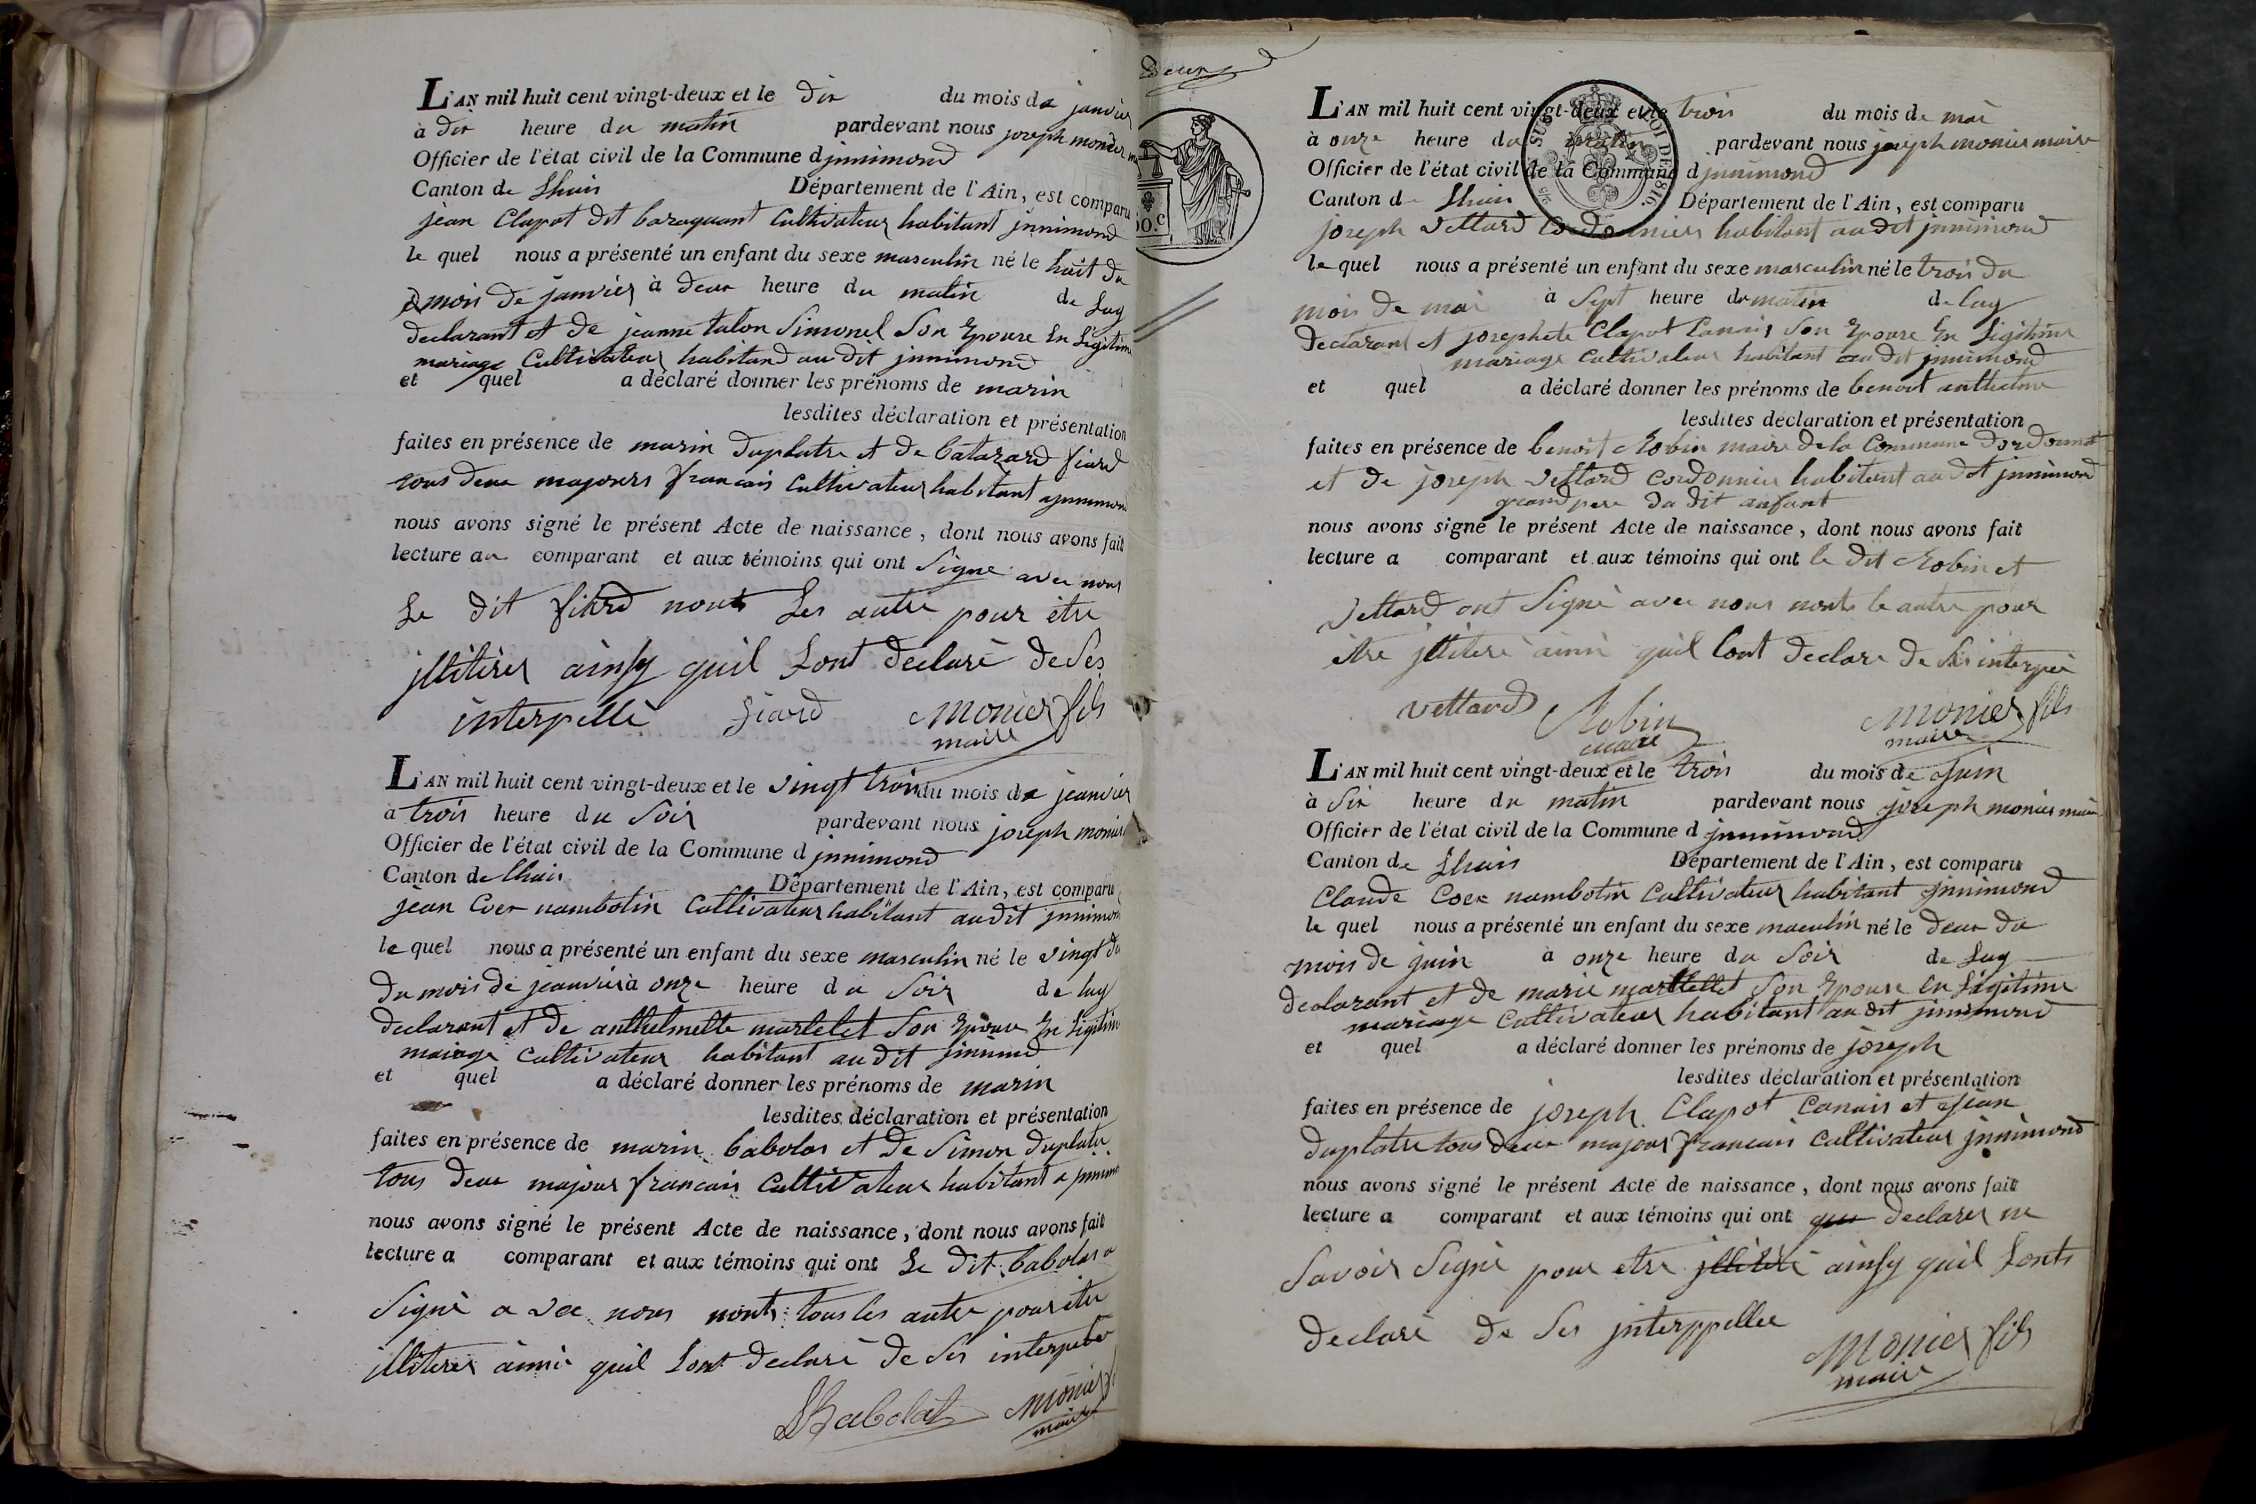 L'AN mil huit cent vingt-deux et le dix du mois de janvier
à dix heure du matin pardevant nous joseph monier
Officier de l'état civil de la Commune d jnnimond
Canton de Lhuis Département de l'Ain, est comparu
jean Clapot dit baraquant Cultivateur habitant jnnimond
le quel nous a présenté un enfant du sexe masculin né le huit du
mois de janvier à deux heure du matin de Luy
declarant et de jeanne talon Simonel Son Epouse En Légitime
mariage Cultivateur habitand au dit jnnimond
et quel a déclaré donner les prénoms de marin
lesdites déclaration et présentation
faites en présence de marin duplatre et de batazard fiard
tous deux majeurs francais Cultivateur habitant a jnnimond
nous avons signé le présent Acte de naissance, dont nous avons fait
lecture au comparant et aux témoins qui ont Signe avec nous
Le dit fiard nont Les autre pour être
jlliterer ainsy quil Lont declaré de Ses
interpellé fiard Monier fils
maire
L'AN mil huit cent vingt-deux et le vingt trois du mois de jeanvier
à trois heure du Soir pardevant nous joseph monier
Officier de l'état civil de la Commune d jnnimond
Canton de Lhuis Département de l'Ain, est comparu
jean Coer nambotin Cultivateur habitant audit jnnimond
le quel nous a présenté un enfant du sexe masculin né le vingt du
du mois de jeanvier à onze heure du Soir de luy
declarant et de anthelmette martelet Son Epouse En Légitime
maiage Cultivateur habitant au dit jnnimd
et quel a déclaré donner les prénoms de marin
lesdites déclaration et présentation
faites en présence de marin babolas et de Simon duplatre
tous deux majour francais Cultivateur habitant a jnnimo
nous avons signé le présent Acte de naissance, dont nous avons fait
lecture a comparant et aux témoins qui ont Le dit babolas a
Signé a vec nous nont tous les autre pour etre
jlliterer ainsi quil Lont declaré de Ses interpellé
Babolat Monier
maire
deux
L'AN mil huit cent vingt-deux et le trois du mois de mai
à onze heure du matin pardevant nous joseph monier maire
Officier de l'état civil de la Commune d jnnimond
Canton de Lhuis Département de l'Ain, est comparu
joseph Vettard Cordonnier habitant au dit jnnimond
le quel nous a présenté un enfant du sexe masculin né le trois du
mois de mai à Sept heure du matin de Luy
declarant et josephete Clapot Canais Son Epouse En Ligitime
mariage cultivateur habitant au dit jnnimond
et quel a déclaré donner les prénoms de benoit anthelme
lesdites déclaration et présentation
faites en présence de benoit Robin maire de la Commune dordonnat
et de joseph Vettard cordonnier habitant au dit jnnimond
grand pere du dit anfant
nous avons signé le présent Acte de naissance, dont nous avons fait
lecture a comparant et aux témoins qui ont le dit Robin et
Vettard ont Signé avec nous nont le autre pour
être jlliteré ainsi quil Lont declare de Ses
vettard Robin Monier fils
maire maire
L'AN mil huit cent vingt-deux et le trois du mois de Juin
à Six heure du matin pardevant nous joseph monier maire
Officier de l'état civil de la Commune d jnnimond
Canton de Lhuis Département de l'Ain, est comparu
Claude Coer nambotin Cultivateur habitant jnnimond
le quel nous a présenté un enfant du sexe masculin né le deux du
mois de juin à onze heure du Soir de Luy
declarant et de marie martellet Son Epouse En Légitime
mariage Cultivateur habitant au dit jnnimond
et quel a déclaré donner les prénoms de joseph
lesdites déclaration et présentation
faites en présence de joseph Clapot Canais et Jean
duplatre tous deux majour francais Cultivateur jnnimond
nous avons signé le présent Acte de naissance, dont nous avons fait
lecture a comparant et aux témoins qui ont declarer ne
Savoir Signé pour etre jlliteré ainsy quil Lonts
declaré de Ses jnterppellee
Monier fils
maire